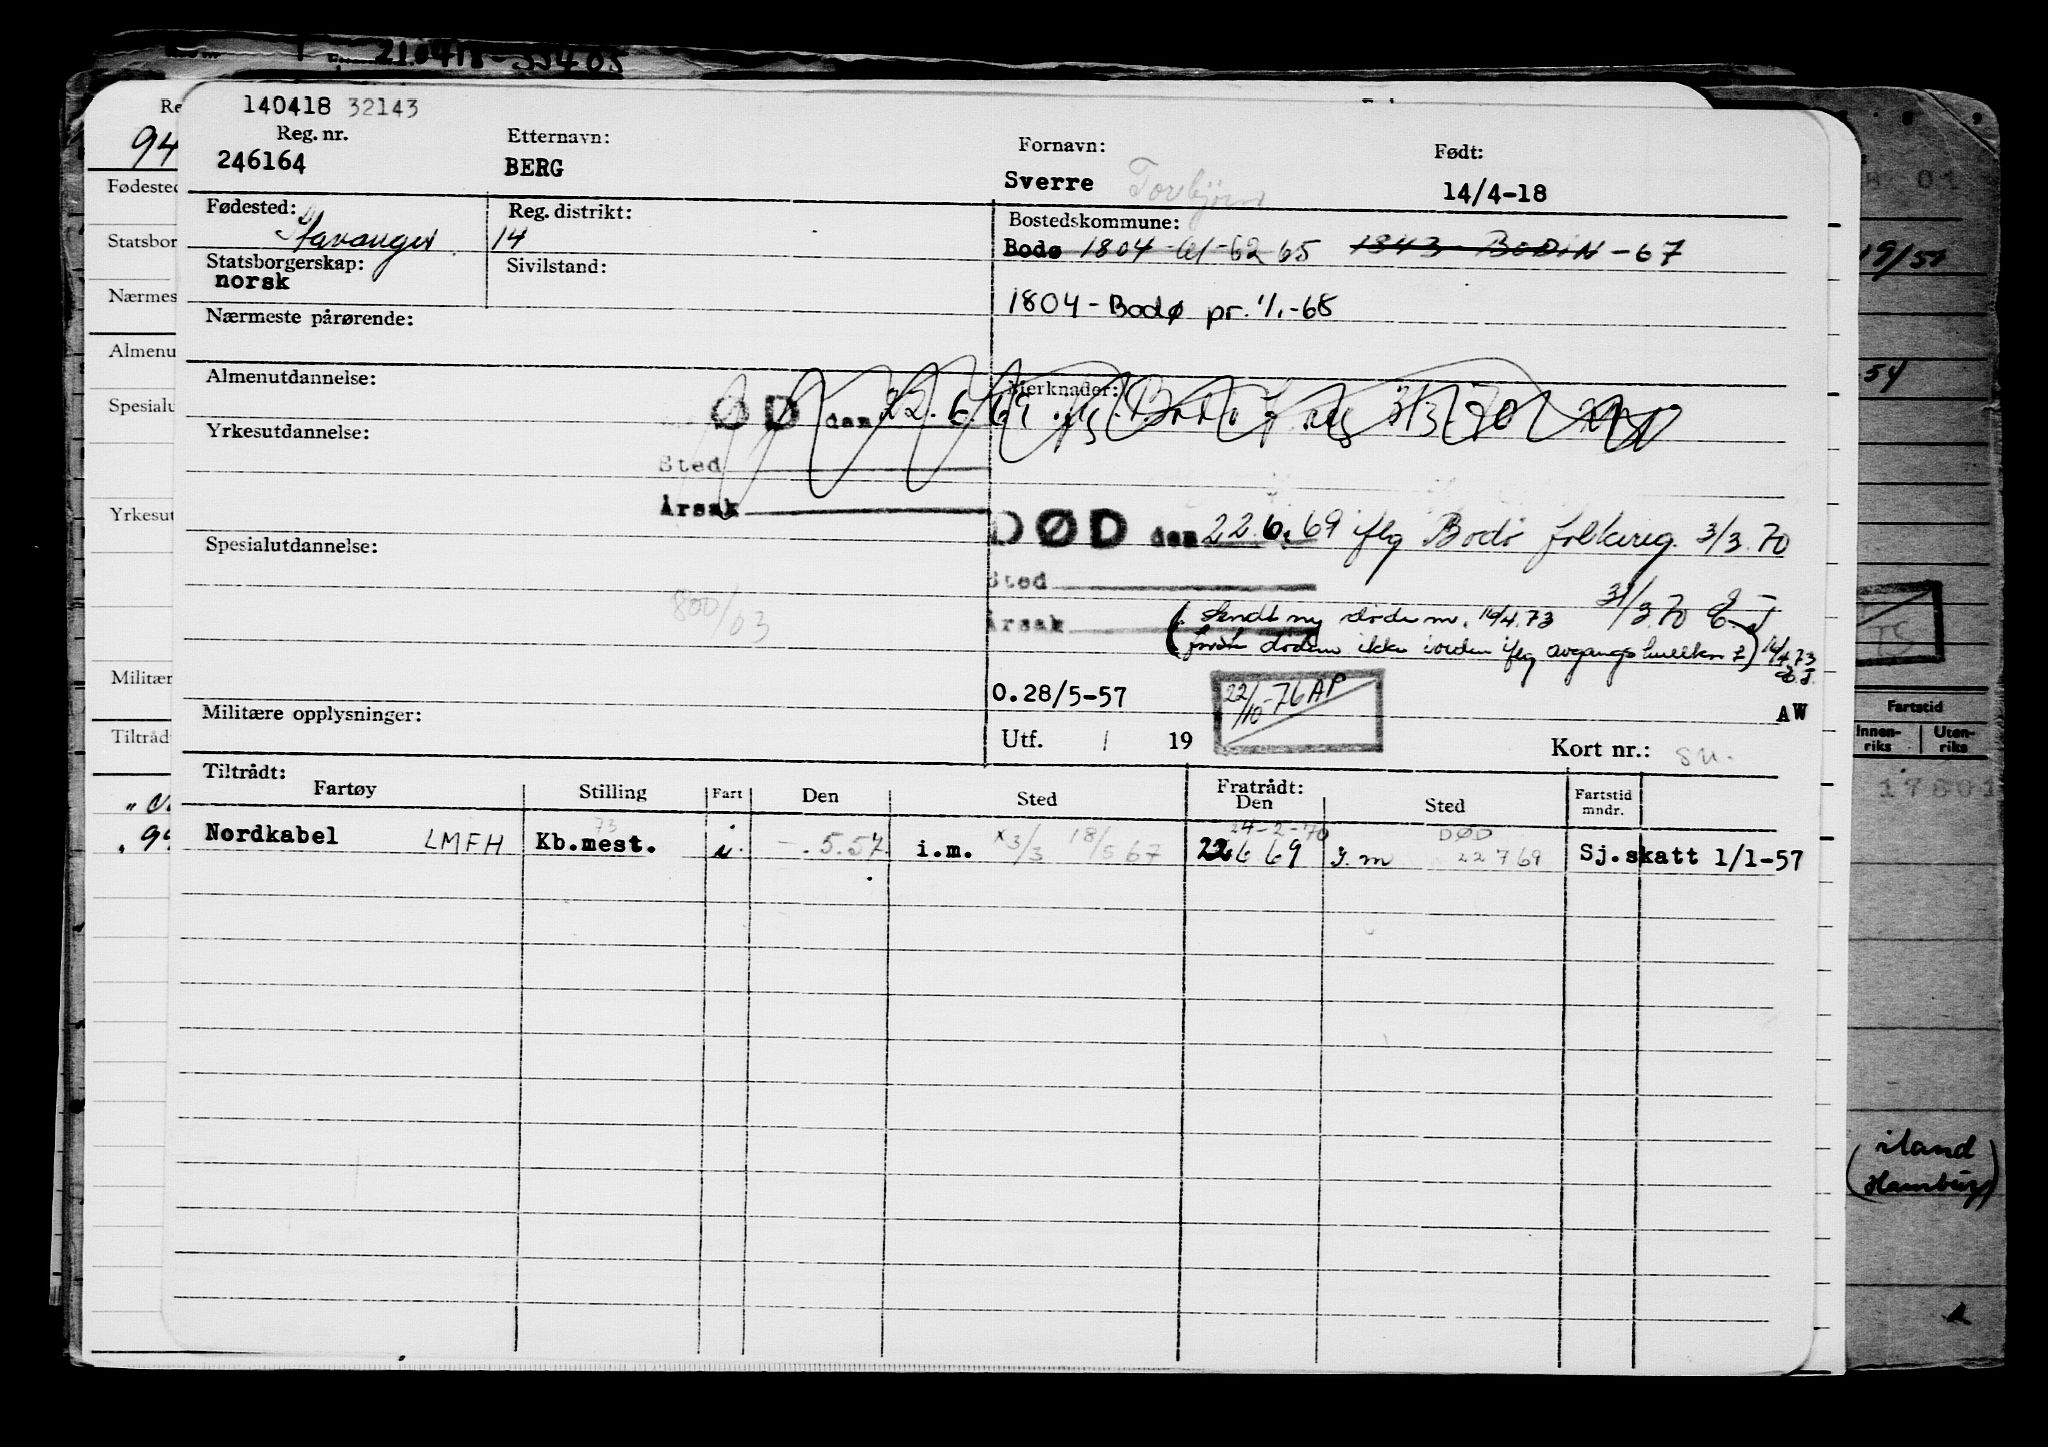 210418-55405
140418 32143
Reg. nr.
Etternavn:
Fornavn:
Født:
246164
BERG
Sverre Torbjörn
14/4-18
Fødested:
Stavanger
Reg. distrikt:
14
Bostedskommune:
Bodø 1804-61-62 65 1843 BODIN-67
Statsborgerskap:
norsk
Sivilstand:
1804-Bodø pr. 1/1-68
Nærmeste pårørende:
Almenutdannelse:
Merknader:
ØD den 22.6.69
3/3-70
Yrkesutdannelse:
Sted
Årsak
DØD den 22.6.69 iflg Bodø folkereg. 3/3.70
Spesialutdannelse:
Sted
800/63
31/3.70
Årsak
(Sendt ny dødsm. 16/4.73
første dødsm ikke iorden iflg avgangshullkort) 16/4.73
0.28/5-57
22/10-76 AP
AW
Militære opplysninger:
Utf. / 19
Kort nr.: su.
Tiltrådt:
Fartøy
Stilling
Fart
Den
Sted
Fratrådt:
Den
Sted
Fartstid
mndr.
73
24-2-70
DØD
Nordkabel LMFH
Kb.mest.
i
.5.57
i.m. x3/3 18/5 67
22 6 69
I.m
22 7 69
Sj.skatt 1/1-57
94
Fødested
Statsbor
Nærmes
Almenu
Spesialu
Yrkesut
Militær
Tiltråd
19/51
54
TS
Fartstid
Innen-
riks
Uten-
riks
17801
(iland
Hamburg)